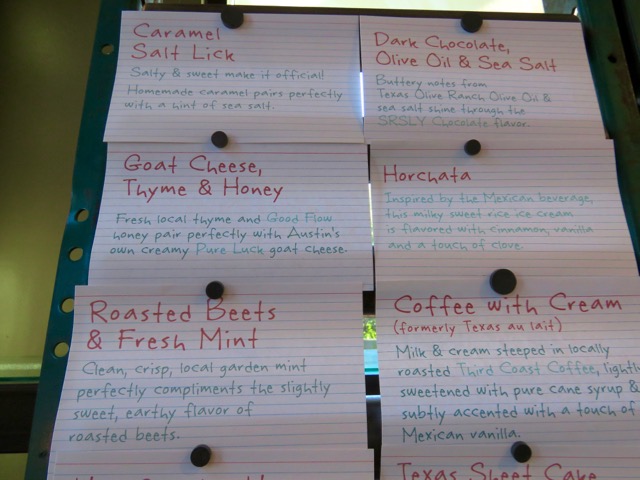 Caramel
Salt Lick
Salty & sweet make it official!
Homemade caramel pairs perfectly
with a hint of sea salt.
Dark Chocolate,
Olive Oil & Sea Salt
Buttery notes from
Texas Olive Ranch Olive Oil &
sea salt shine through the
SRSLY Chocolate flavor.
Goat Cheese,
Thyme & Honey
Fresh local thyme and Good Flow
honey pair perfectly with Austin's
own creamy Pure Luck goat cheese.
Horchata
Inspired by the Mexican beverage,
this milky sweet rice ice cream
is flavored with cinnamon, vanilla
and a touch of clove.
Roasted Beets
& Fresh Mint
Clean, crisp, local garden mint
perfectly compliments the slightly
sweet, earthy flavor of
roasted beets.
Coffee with Cream
(formerly Texas au lait)
Milk & cream steeped in locally
roasted Third Coast Coffee, lightly
sweetened with pure cane syrup &
subtly accented with a touch of
Mexican vanilla.
Texas Sheet Cake